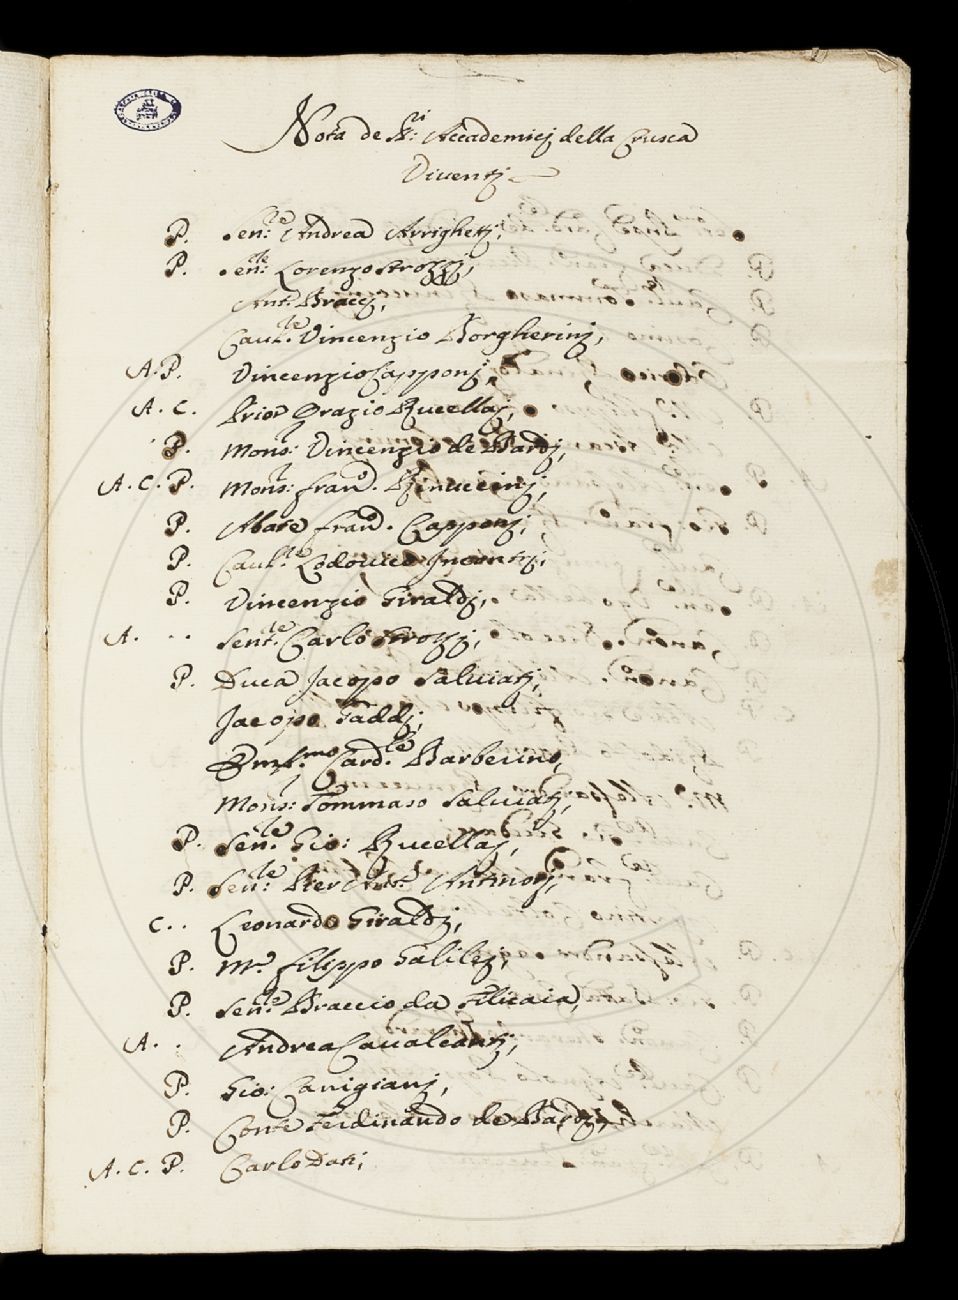 Nota de S.ri Accademici della Crusca
Viventi
P. Sen.re Andrea Arrighetti,
P. Sen.re Lorenzo Strozzi,
Ant.o Bracci,
Caual.re Vincenzio Borgherini,
A. P. Vincenzio Capponi,
A. C. Prior Orazio Rucellaj,
P. Mons.r Vincenzio de Bardi,
A. C. P. Mons.r Fran.o Rinuccini,
P. Abate Fran.o Capponi,
P. Caul.re Lodovico Incontri,
P. Vincenzio Giraldi,
A. . . Sen.re Carlo Strozzi,
P. Duca Jacopo Salviati,
Jacopo Gaddi,
Em.mo Card.le Barberino,
Mons.r Tommaso Salviati,
P. Sen.re Gio: Rucellaj,
P. Sen.re Pier Antinori,
C. . Leonardo Giraldi,
P. M.r Filippo Galilei,
P. Sen.re Braccio da Filicaia,
A. . Andrea Caualcanti,
P. Gio: Canigiani,
P. Conte Ferdinando de Bardi,
A. C. P. Carlo Dati,